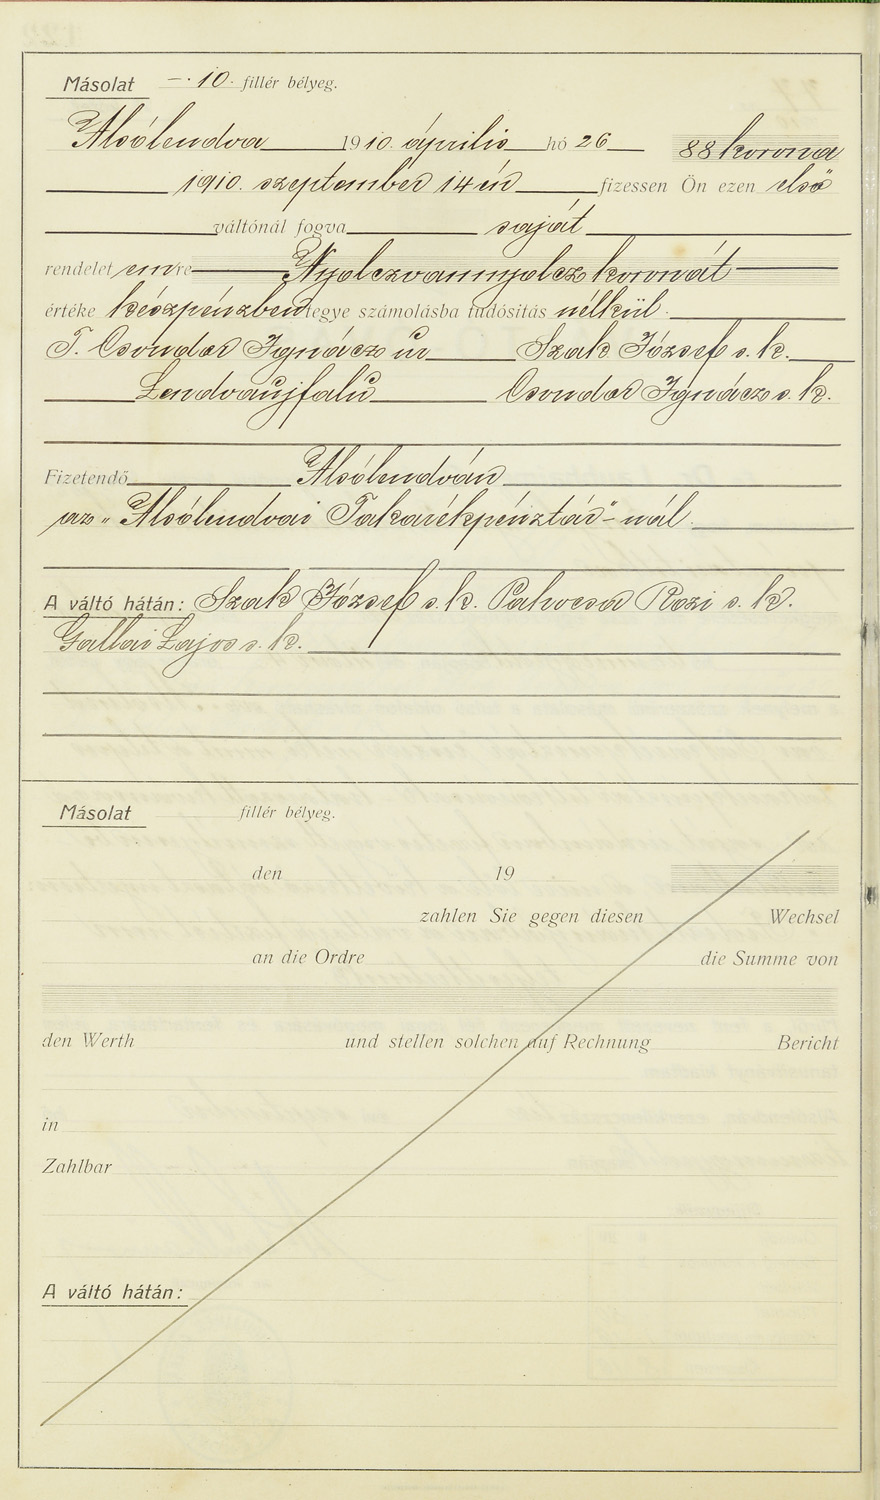 Másolat —·10· fillér bélyeg.
Alsólendva 1910. április hó 26 88 korona
1910. szeptember 14én fizessen Ön ezen első
váltónál fogva saját
rendeletemre Nyolczvannyolcz koronát
értéke készpénzben tegye számolásba tudósítás nélkül.
T. Csondor Ignácz úr Szak József s. k.
Lendvaujfalu Csondor Ignácz s. k.
Fizetendő Alsólendván
az „Alsólendvai Takarékpénztár"-nál.
A váltó hátán: Szak József s. k. Rozi s. k.
Gallai Lajos s. k.
Másolat fillér bélyeg.
den 19
zahlen Sie gegen diesen Wechsel
an die Ordre die Summe von
den Werth und stellen solchen auf Rechnung Bericht
in
Zahlbar
A váltó hátán: